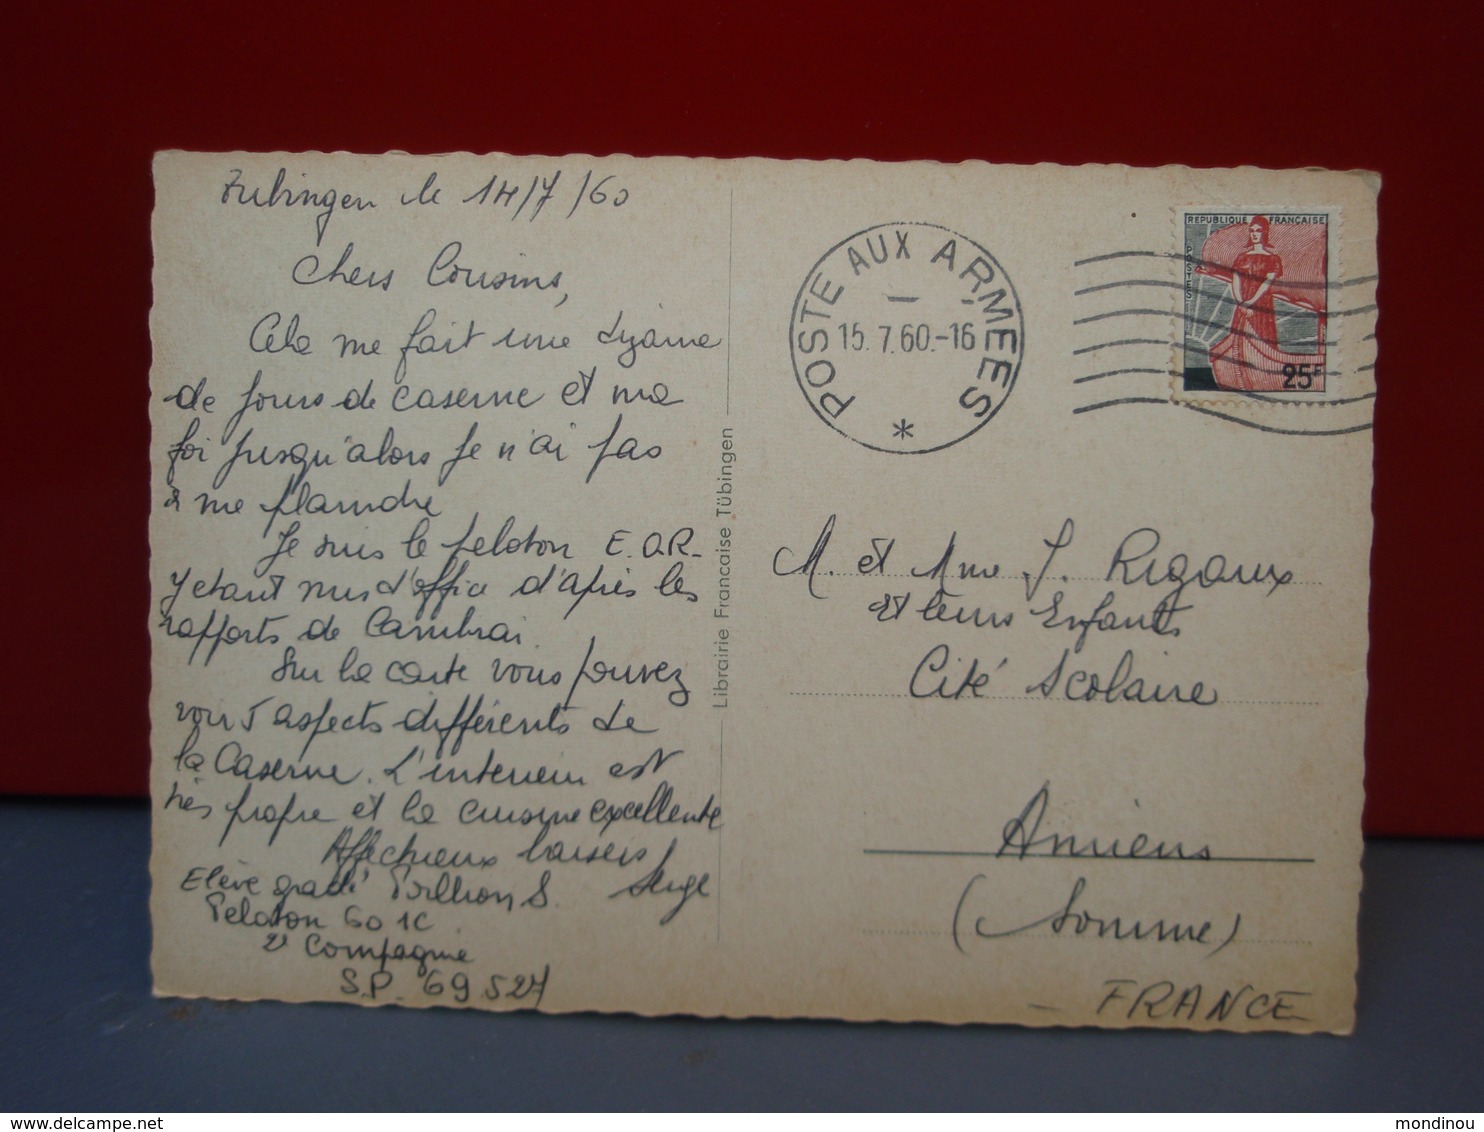 Tubingen le 14/7/60
Chers Cousins,
Cela me fait une dizaine
de jours de caserne et ma
foi jusqu'alors je n'ai pas
à me plaindre
Je suis le peloton E.O.R.
y étant mis d'office d'après les
rapports de Cambrai.
Sur la carte vous pouvez
voir 5 aspects différents de
la Caserne. L'interieur est
très propre et la cuisine excellente
Affectueux baisers
Serge
Elève gradé S.
Peloton 60 1C
2e Compagnie
S.P. 69 527
Librairie Francaise Tübingen
POSTE AUX ARMEES
15.7.60.-16
*
REPUBLIQUE FRANÇAISE
POSTES
25F
M. et Mme J. Rigaux
et leurs Enfants
Cité Scolaire
Amiens
(Somme)
- FRANCE
delcampe.net
mondinou